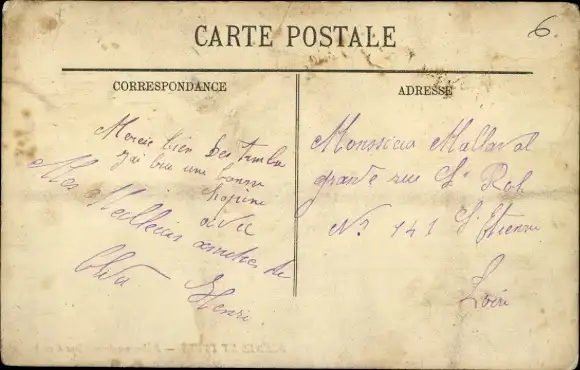 6.
CARTE POSTALE
CORRESPONDANCE
Mercie bien des timbre
j'ai bu une bonne
Chopine
avec
Mes Meilleurs amitiés de
Henri
ADRESSE
Monssieu Mallaval
grande rue St Roch
N° 141 St Etienne
Loire